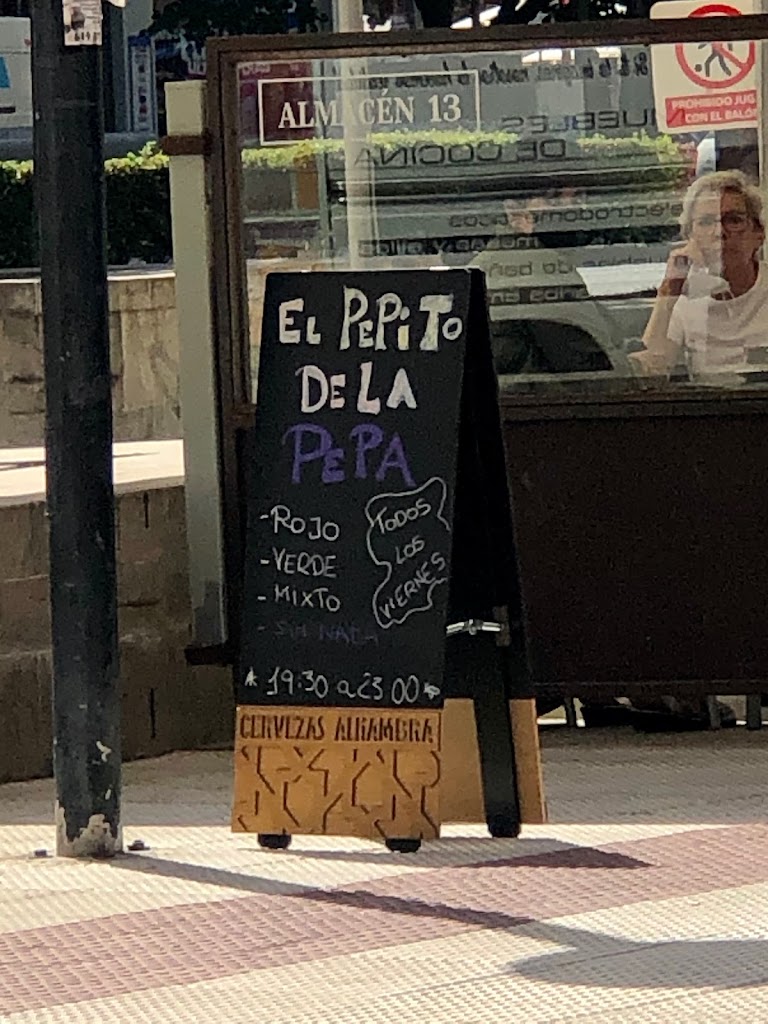 ALMACÉN 13
MUEBLES
DE COCINA
electrodomésticos
PROHIBIDO JUG
CON EL BALÓN
EL PEPITO
DE LA
PEPA
-ROJO
-VERDE
-MIXTO
-SIN NADA
TODOS
LOS
VIERNES
19:30 a 23 00
CERVEZAS ALHAMBRA